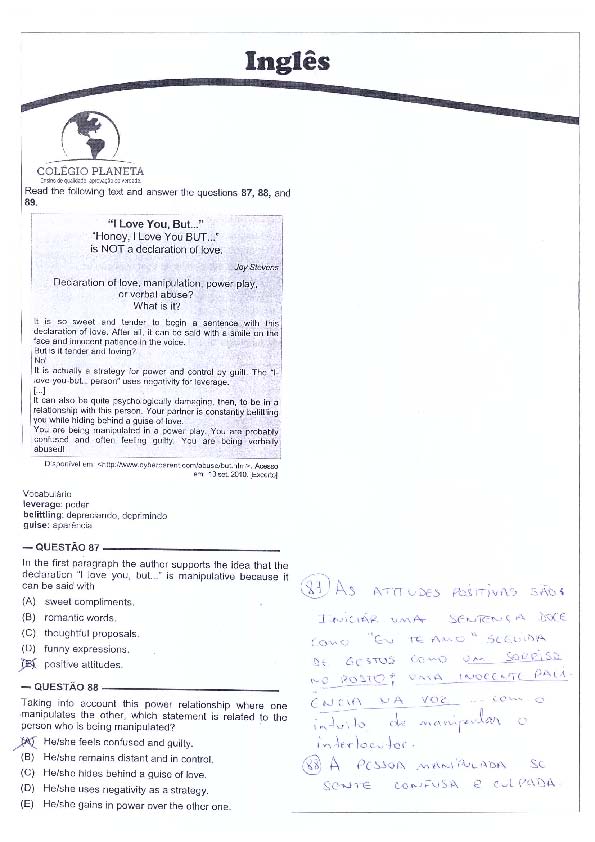 Inglês
COLÉGIO PLANETA
Ensino de qualidade, aprovação de verdade.
Read the following text and answer the questions 87, 88, and
89.
"I Love You, But..."
"Honey, I Love You BUT..."
is NOT a declaration of love.
Joy Stevens
Declaration of love, manipulation, power play,
or verbal abuse?
What is it?
It is so sweet and tender to begin a sentence with this
declaration of love. After all, it can be said with a smile on the
face and innocent patience in the voice.
But is it tender and loving?
No!
It is actually a strategy for power and control by guilt. The "I-
love-you-but... person" uses negativity for leverage.
[...]
It can also be quite psychologically damaging, then, to be in a
relationship with this person. Your partner is constantly belittling
you while hiding behind a guise of love.
You are being manipulated in a power play. You are probably
confused and often feeling guilty. You are being verbally
abused!
Disponível em: <http://www.cyberparent.com/abuse/but.htm>. Acesso
em: 13 set. 2010. [Excerto]
Vocabulário
leverage: poder
belittling: depreciando, deprimindo
guise: aparência
QUESTÃO 87
In the first paragraph the author supports the idea that the
declaration "I love you, but..." is manipulative because it
can be said with
(A) sweet compliments.
(B) romantic words.
(C) thoughtful proposals.
(D) funny expressions.
(E) positive attitudes.
QUESTÃO 88
Taking into account this power relationship where one
manipulates the other, which statement is related to the
person who is being manipulated?
(A) He/she feels confused and guilty.
(B) He/she remains distant and in control.
(C) He/she hides behind a guise of love.
(D) He/she uses negativity as a strategy.
(E) He/she gains in power over the other one.
87 AS ATITUDES POSITIVAS SÃO:
INICIAR UMA SENTENÇA DOCE
COMO "EU TE AMO" SEGUIDA
DE GESTOS COMO UM SORRISO
NO ROSTO, UMA INOCENTE PACI-
ÊNCIA NA VOZ ... com o
intuito de manipular o
interlocutor.
88 A PESSOA MANIPULADA SE
SENTE CONFUSA E CULPADA.